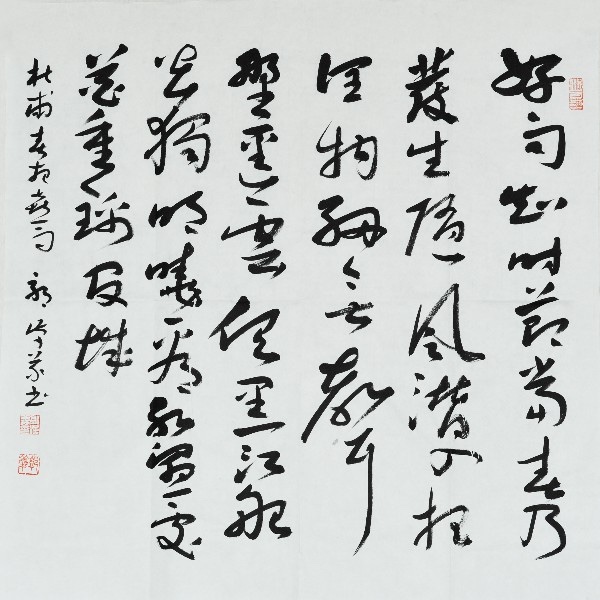 好雨知時節當春乃
發生隨風潛入夜
潤物細無聲
野徑雲俱黑江船
火獨明曉看紅濕處
花重錦官城
杜甫春夜喜雨 郭 书